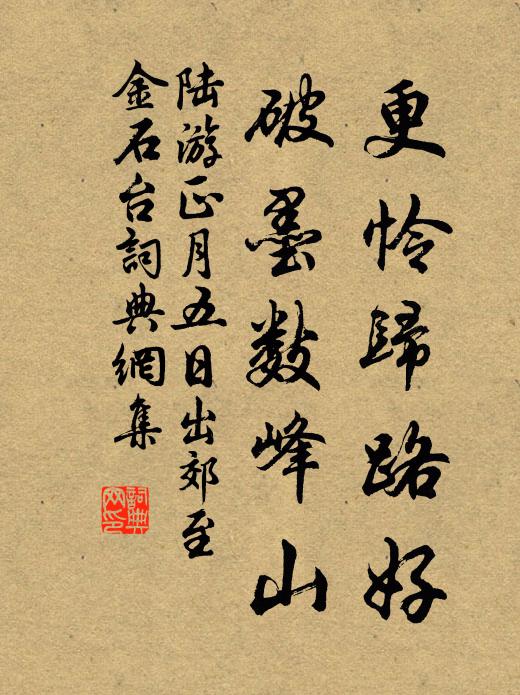 更怜歸路好
破墨數峰山
陆游正月五日出郊至
金石台詞典網集
詞典
网印